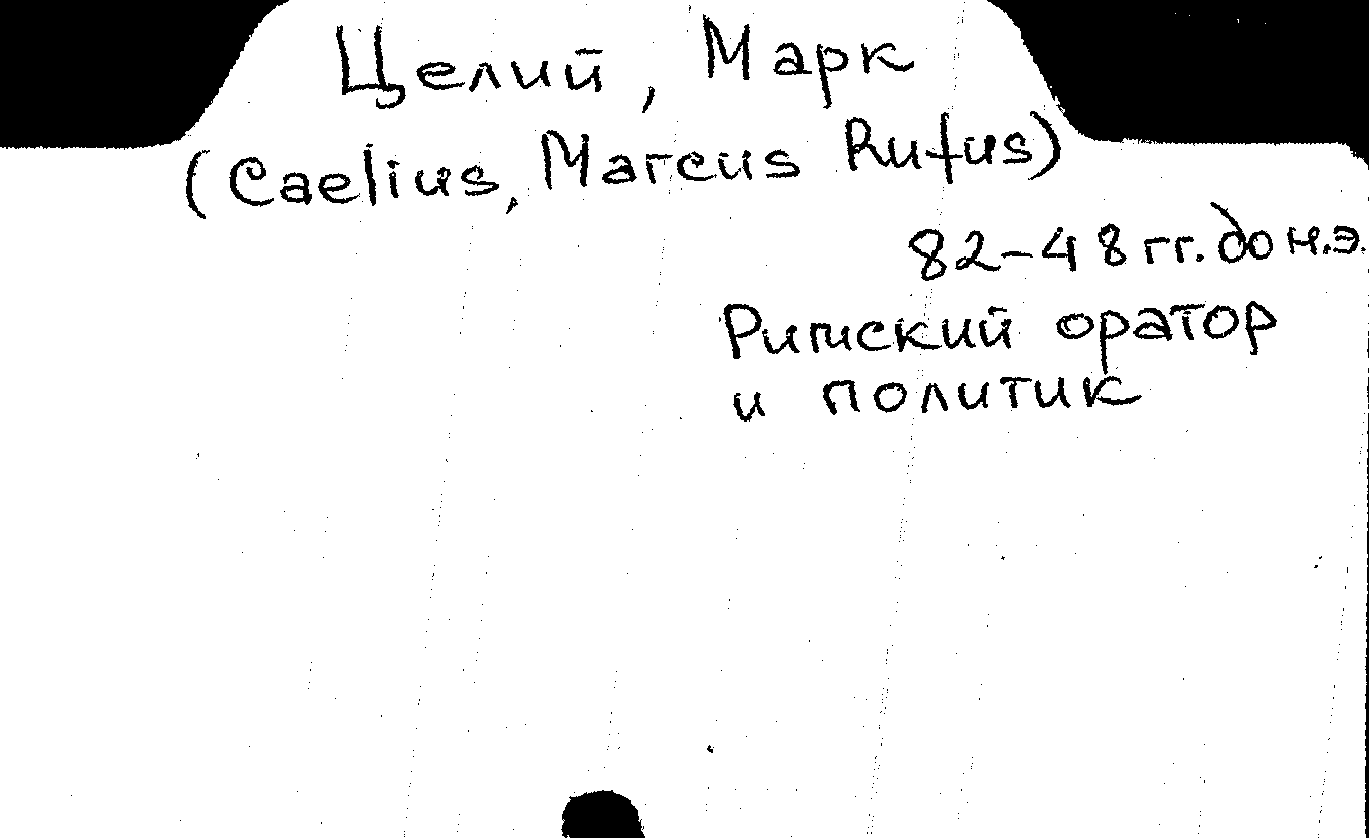 Целий, Марк
(Caelius, Marcus Rufus)
82-48 гг. до н.э.
Римский оратор
и политик